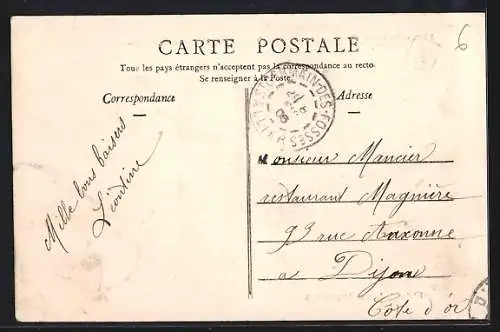 6
CARTE POSTALE
Tous les pays étrangers n'acceptent pas la correspondance au recto.
Se renseigner à la Poste
Correspondance
Adresse
ST GERMAIN-DES-FOSSES
ALLIER
24
08
Mille bons baisers
Léontine
Monsieur Mancier
restaurant Magnière
93 rue Auxonne
a Dijon
Côte d'or